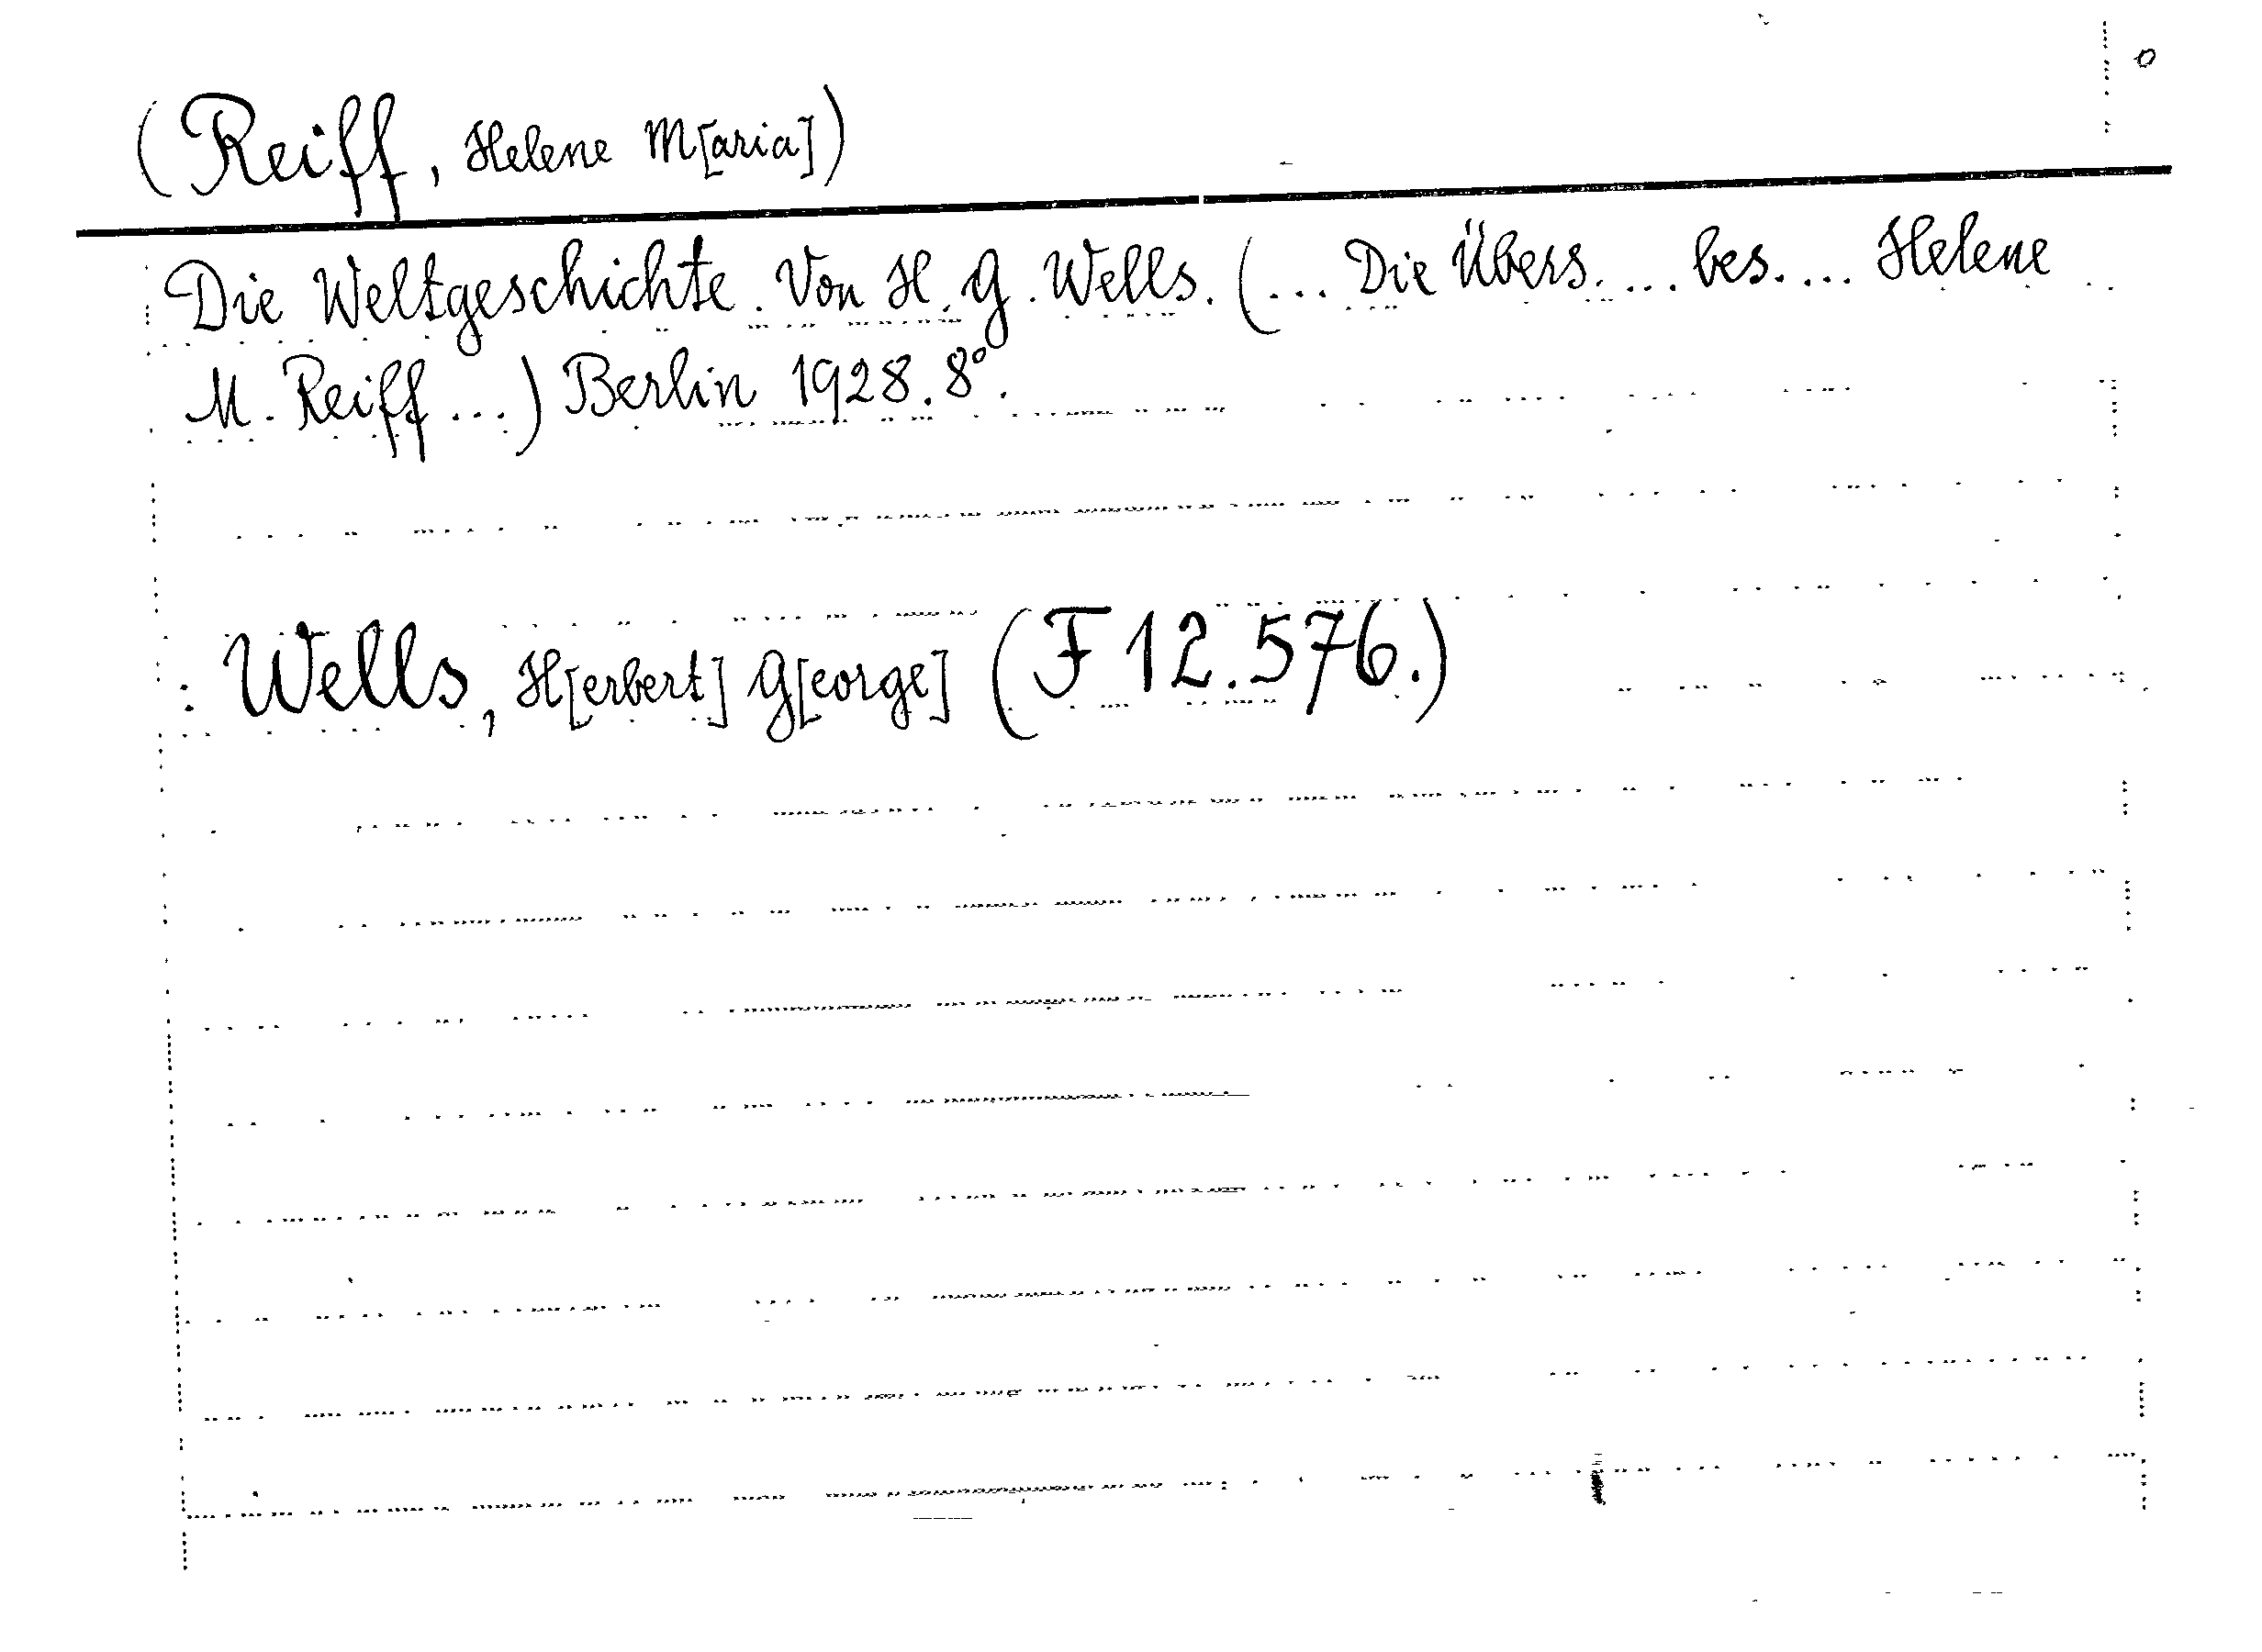 (Reiff, Helene M[aria])
Die Weltgeschichte. Von H. G. Wells. (... Die Übers. ... bes. ... Helene
M. Reiff ...) Berlin 1928. 8°.
: Wells, H[erbert] G[eorge] (F 12.576.)